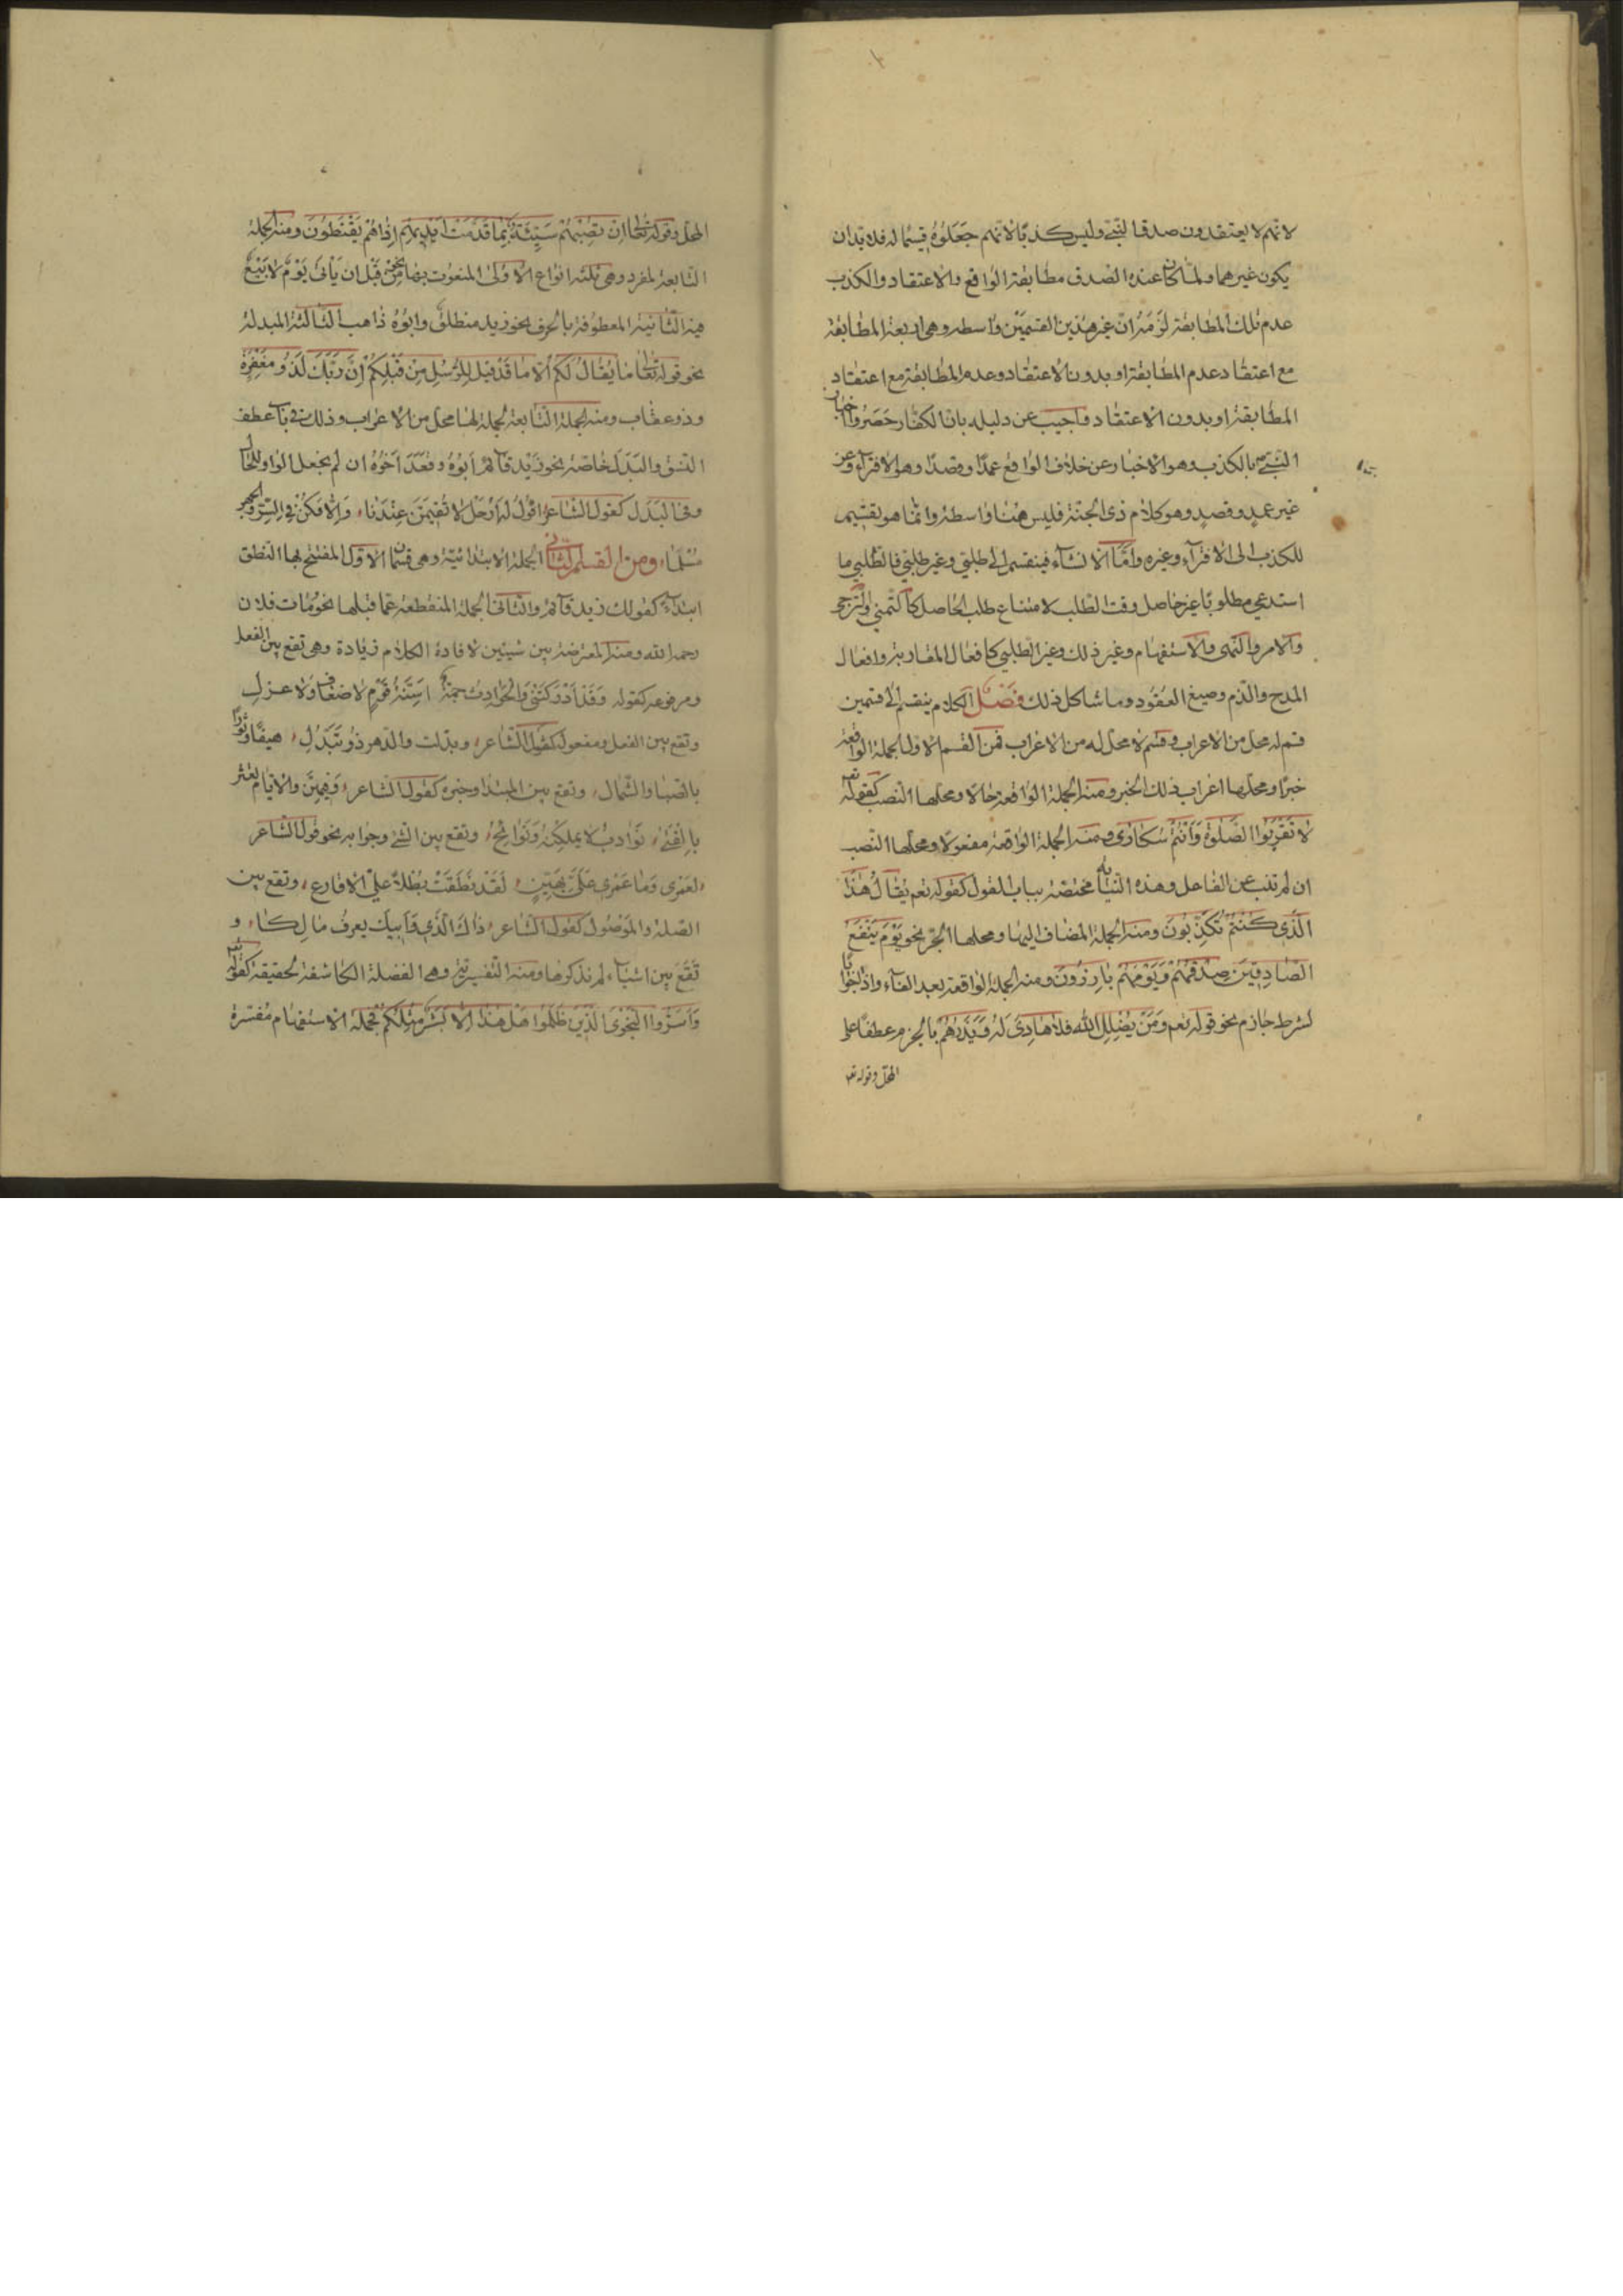 لانهم لا يعتقدون صدق النبي وليس كذبا لانهم جعلوه قسيما له فلا بد ان
يكون غيرهما ولما كان عنده الصدق مطابقة الواقع والاعتقاد والكذب
عدم تلك المطابقة لزمه ان غير هذين القسمين واسطة وهي اربعة المطابقة
مع اعتقاد عدم المطابقة او بدون الاعتقاد وعدم المطابقة مع اعتقاد
المطابقة او بدون الاعتقاد واجيب عن دليله بان الكفار حصروا اخبار
النبي بالكذب وهو الاخبار عن خلاف الواقع عمدا وقصدا وهو الافتراء وعن
غير عمد وقصد وهو كلام ذي الجنة فليس هنا واسطة وانما هو تقسيم
للكذب الى الافتراء وغيره واما الانشاء فينقسم الى طلبي وغير طلبي فالطلبي ما
استدعى مطلوبا غير حاصل وقت الطلب لامتناع طلب الحاصل كالتمني والترجي
والامر والنهى والاستفهام وغير ذلك وغير الطلبي كافعال المقاربة وافعال
المدح والذم وصيغ العقود وما شاكل ذلك فصل الكلام ينقسم الى قسمين
قسم له محل من الاعراب وقسم لا محل له من الاعراب فمن القسم الاول الجملة الواقعة
خبرا ومحلها اعراب ذلك الخبر ومنه الجملة الواقعة حالا ومحلها النصب كقوله تع
لا تَقْرَبُوا الصَّلوٰةَ وَاَنْتُمْ سُكَارٰى ومنه الجملة الواقعة مفعولا ومحلها النصب
ان لم تنب عن الفاعل وهذه النيابة مختصة بباب القول كقوله تعم يُقَالُ هٰذَا
الَّذِى كُنْتُمْ تُكَذِّبُونَ ومنه الجملة المضاف اليها ومحلها الجر نحو يَوْمَ يَنْفَعُ
الصَّادِقِينَ صِدْقُهُمْ وَيَوْمَهُمْ بَارِزُونَ ومنه الجملة الواقعة بعد الفاء واذا جوابا
لشرط جازم نحو قوله تعم وَمَنْ يُضْلِلِ اللهُ فَلَا هَادِىَ لَهُ وَيَذَرْهُمْ بالجزم عطفا على
المحل وقوله تع
المحل وقوله تعالى اِنْ تُصِبْهُمْ سَيِّئَةٌ بِمَا قَدَّمَتْ اَيْدِيهِمْ اِذَا هُمْ يَقْنَطُونَ ومنه الجملة
التابعة لمفرد وهى ثلثة انواع الاولى المنعوت بها نحو مِنْ قَبْلِ ان يَأْتِىَ يَوْمٌ لَا بَيْعٌ
فيه الثانية المعطوفة بالحرف نحو زيد منطلق وابوه ذاهب الثالثة المبدلة
نحو قوله تعالى مَا يُقَالُ لَكَ اِلَّا مَا قَدْ قِيلَ لِلرُّسُلِ مِنْ قَبْلِكَ اِنَّ رَبَّكَ لَذُو مَغْفِرَةٍ
وذو عقاب ومنه الجملة التابعة لجملة لها محل من الاعراب وذلك في باب عطف
النسق والبدل خاصة نحو زيد قائم ابوه وقعد اخوه ان لم يجعل الواو للحال
وفى البدل كقول الشاعر اقول له ارحل لا تقيمن عندنا وَاِلَّا فكن في السر والجهر
مُسْلِمًا ومن القسم الثانى الجملة الابتدائية وهى قسمان الاول المفتتح بها النطق
ابتداء كقولك زيد قائم والثانى الجملة المنقطعة عما قبلها نحو مات فلان
رحمه الله ومنه المعترضة بين شيئين لافادة الكلام زيادة وهى تقع بين الفعل
ومرفوعه كقوله وَقَدْ اَدْرَكَتْنِى وَالْحَوَادِثُ جَمَّةٌ اَسِنَّةُ قَوْمٍ لا ضعاف ولا عزل
وتقع بين الفعل ومفعوله كقول الشاعر وبدلت والدهر ذو تبدل هيفا دبورا
بالصبا والشمال وتقع بين المبتدا وخبره كقول الشاعر وَفِيهِنَّ والايام يعثرن
بالفتى نَوَادِبُ لا يمللنه وَنَوَائِحُ وتقع بين الشىء وجوابه نحو قول الشاعر
لعمرى وَمَا عَمْرِى عَلَىَّ بِهَيِّنٍ لَقَدْ نَطَقَتْ بُطْلًا عَلَىَّ الاقارع وتقع بين
الصلة والموصول كقول الشاعر ذاك الَّذِى وَاَبِيكَ يعرف مالكا و
تَقَعُ بين اشياء لم نذكرها ومنه التفسيرية وهى الفضلة الكاشفة لحقيقة كقوله تع
وَاَسَرُّوا النَّجْوَى الَّذِينَ ظَلَمُوا هَلْ هٰذَا اِلَّا بَشَرٌ مِثْلُكُمْ فجملة الاستفهام مُفَسِّرَة